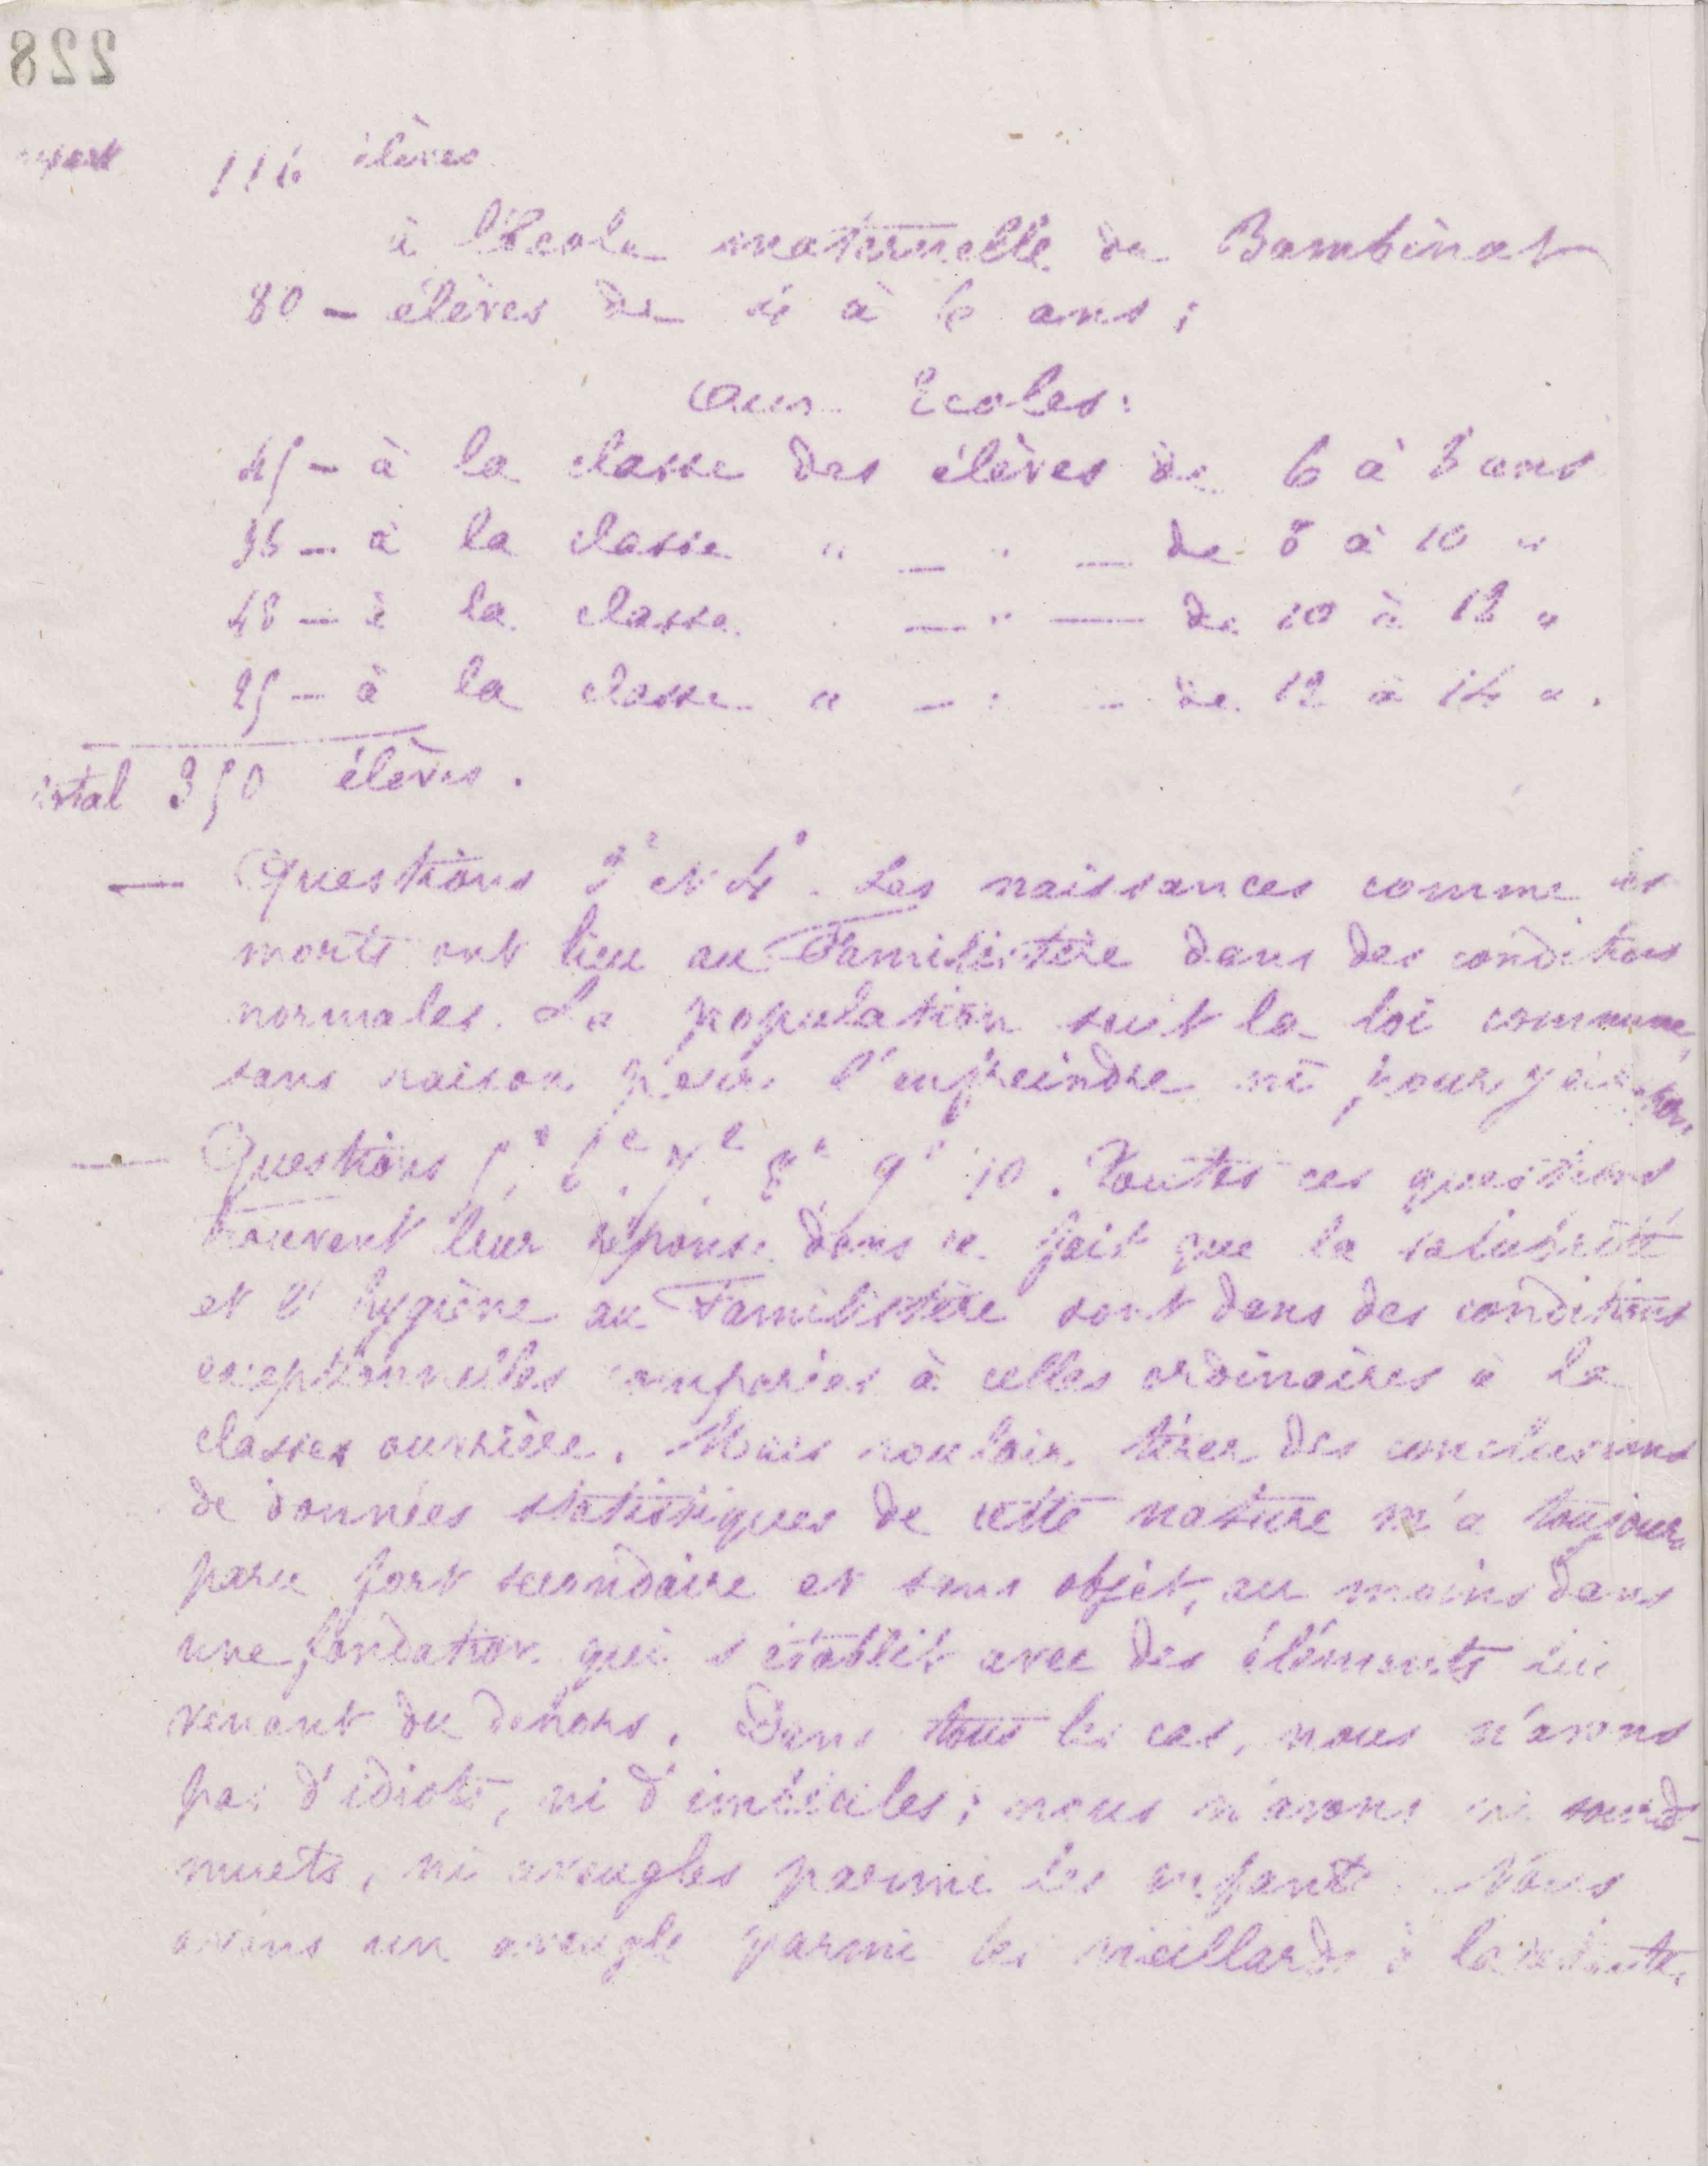 228
report 116 élèves
à l'Ecole maternelle du Bambinat
80 — élèves de 4 à 6 ans ;
Aux Ecoles :
45 — à la classe des élèves de 6 à 8 ans
36 — à la classe " — " — de 8 à 10 "
48 — à la classe " — " — de 10 à 12 "
25 — à la classe " — " — de 12 à 14 ".
total 350 élèves.
— Questions 3e et 4e. Les naissances comme les
morts ont lieu au Familistère dans des conditions
normales. La population suit la loi commune,
sans raison pour l'enfreindre ni pour y
— Questions 5e, 6e, 7e, 8e, 9e 10. Toutes ces questions
trouvent leur réponse dans ce fait que la salubrité
et l'hygiène au Familistère sont dans des conditions
exceptionnelles comparées à celles ordinaires à la
classes ouvrière. Mais vouloir tirer des conclusions
de données statistiques de cette nature m'a toujours
paru fort secondaire et sans objet, au moins dans
une fondation qui s'établit avec des éléments lui
venant du dehors. Dans tous les cas, nous n'avons
pas d'idiots, ni d'imbéciles ; nous n'avons ni sourds-
muets, ni aveugles parmi les enfants. Nous
avons un aveugle parmi les vieillards à la retraite.